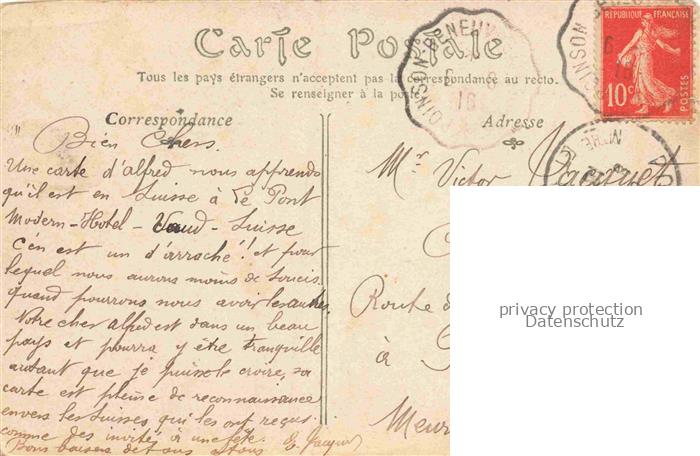 Carte Postale
Tous les pays étrangers n'acceptent pas la correspondance au recto.
Se renseigner à la poste.
Correspondance
Adresse
RÉPUBLIQUE FRANÇAISE
10c
POSTES
Bien Chers
Une carte d'alfred nous apprends
qu'il est en Suisse à Le Pont
Modern-Hotel - Vaud - Suisse
C'en est un d'arraché! et pour
lequel nous aurons moins de soucis.
quand pourrons nous avoir les autres.
Votre cher alfred est dans un beau
pays et pourra y être tranquille
autant que je puisse le croire, sa
carte est pleine de reconnaissance
envers les Suisses qui les ont reçus
comme des invités à une fête.
Bons baisers de tous à tous
Mr Victor Jacquot
Route d
à
Meur
privacy protection
Datenschutz